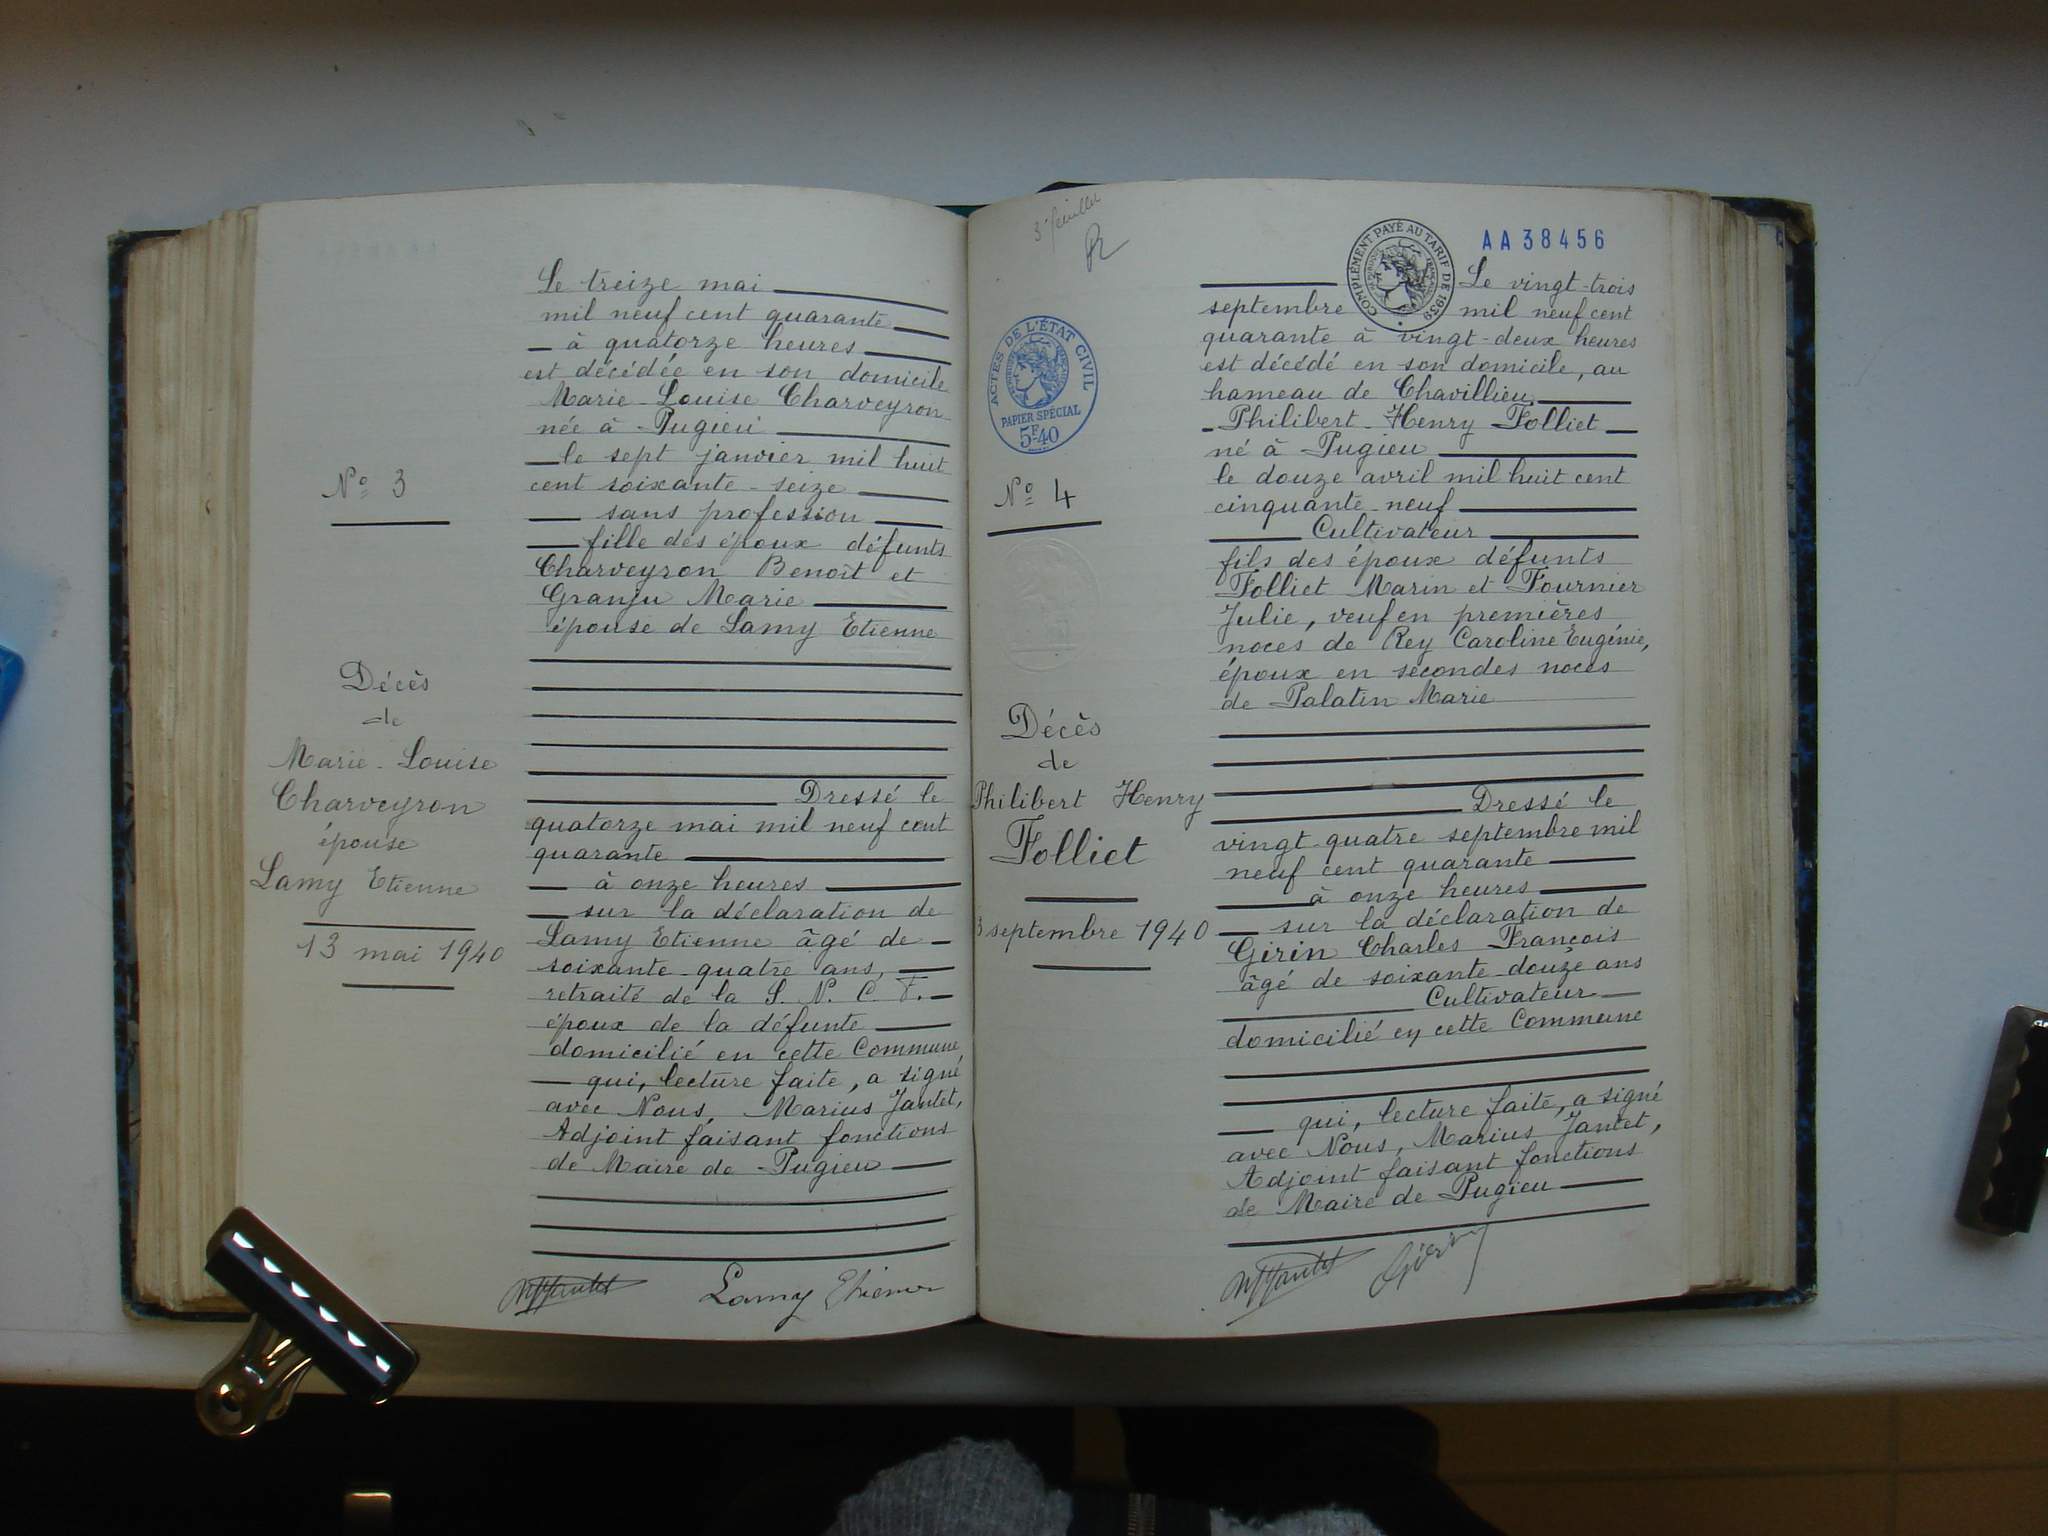 Le treize mai
mil neuf cent quarante
à quatorze heures
est décédée en son domicile
Marie-Louise Charveyron
née à Pugieu
le sept janvier mil huit
cent soixante-seize
sans profession
fille des époux défunts
Charveyron Benoît et
Granju Marie
épouse de Lamy Etienne
Nº 3
Décès
de
Marie-Louise
Charveyron
épouse
Lamy Etienne
13 mai 1940
Dressé le
quatorze mai mil neuf cent
quarante
à onze heures
sur la déclaration de
Lamy Etienne âgé de
soixante-quatre ans,
retraité de la S. N. C. F.
époux de la défunte
domicilié en cette Commune
qui, lecture faite, a signé
avec Nous, Marius Jantet,
Adjoint faisant fonctions
de Maire de Pugieu
Lamy Etienne
3e feuillet
AA 38456
COMPLÉMENT PAYÉ AU TARIF DE 1939
ACTES DE L'ÉTAT CIVIL
PAPIER SPÉCIAL
5F40
Nº 4
Décès
de
Philibert Henry
Folliet
3 septembre 1940
Le vingt-trois
septembre mil neuf cent
quarante à vingt-deux heures
est décédé en son domicile, au
hameau de Chavillieu
Philibert-Henry Folliet
né à Pugieu
le douze avril mil huit cent
cinquante-neuf
Cultivateur
fils des époux défunts
Folliet Marin et Fournier
Julie, veuf en premières
noces de Rey Caroline Eugénie,
époux en secondes noces
de Palatin Marie
Dressé le
vingt-quatre septembre mil
neuf cent quarante
à onze heures
sur la déclaration de
Girin Charles François
âgé de soixante-douze ans
Cultivateur
domicilié en cette Commune
qui, lecture faite, a signé
avec Nous, Marius Jantet,
Adjoint faisant fonctions
de Maire de Pugieu
Girin